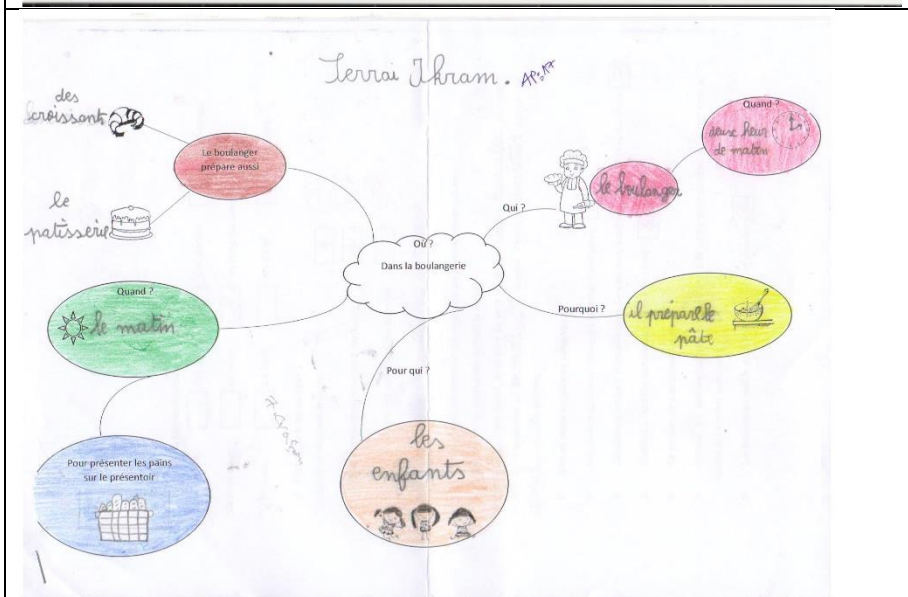 Terrai Ikram.
des
croissant
Le boulanger
prépare aussi
le
patisserie
Quand ?
le matin
Pour présenter les pains
sur le présentoir
Où ?
Dans la boulangerie
Qui ?
le boulanger
Quand ?
deuse heur
de matin
Pourquoi ?
il prépare le
pâte
Pour qui ?
les
enfants